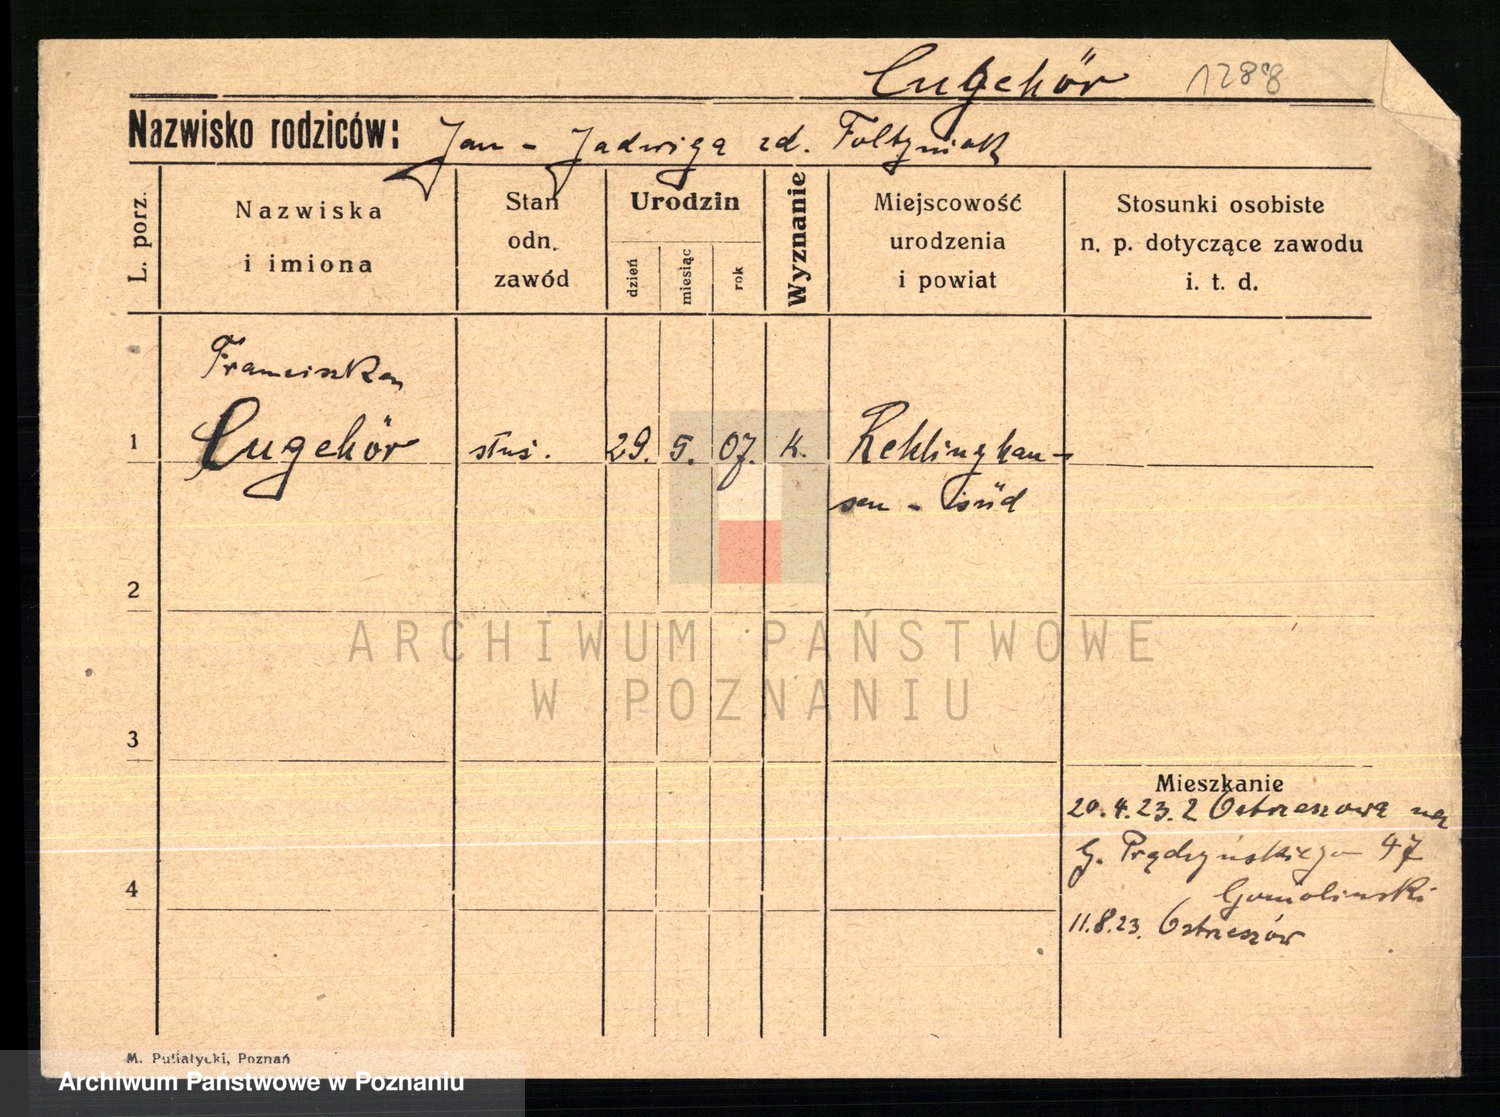 Cugehör 1288
Nazwisko rodziców: Jan - Jadwiga zd. Foltyniak
L. porz.
Nazwiska i imiona
Stan odn. zawód
Urodzin
dzień
miesiąc
rok
Wyznanie
Miejscowość urodzenia i powiat
Stosunki osobiste n. p. dotyczące zawodu i. t. d.
Franciszka
1 Cugehör służ. 29. 5. 07. k. Reklinghau-
sen - süd
2
ARCHIWUM PAŃSTWOWE
W POZNANIU
3
Mieszkanie
20.4.23. z Ostrzeszowa na
G. Prądzyńskiego 47
4
Gomolinski
11.8.23. Ostrzeszów
M. Putiatycki, Poznań
Archiwum Państwowe w Poznaniu